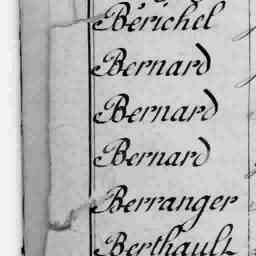 Berichel
Bernard
Bernard
Bernard
Berranger
Berthault